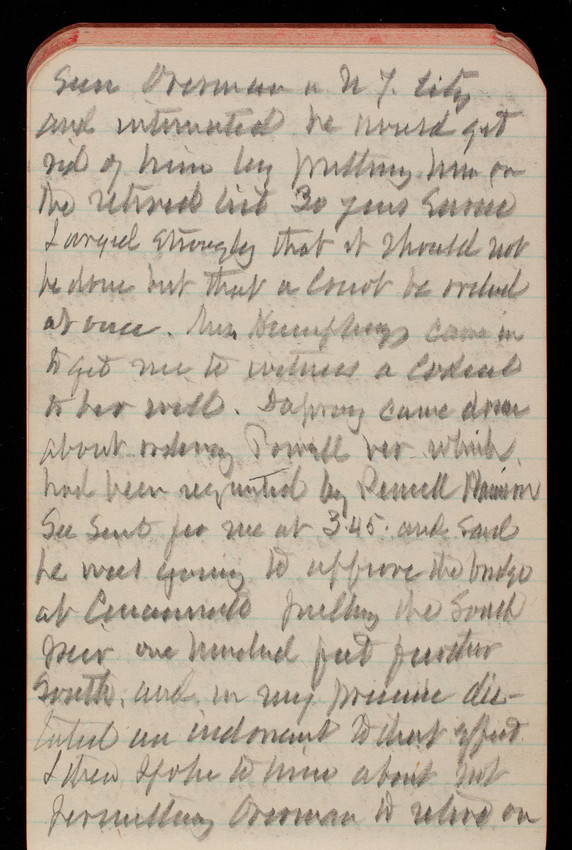 Overman in N Y City
and intimated he would get
rid of him by putting him on
the retired list 30 years Service
I argued strongly that it should not
be done but that a Court be ordered
at once. Mrs Humphreys came in
to get me to witness a Codicil
to her will. came down
about ordering Powell which
had been requested by Powell
Sec Sent for me at 3.45. and said
he was going to approve the bridge
at Cincinnati putting the South
pier one hundred feet further
South, and in my presence dic-
tated an indorsement to that effect
I then spoke to him about not
permitting Overman to retire on